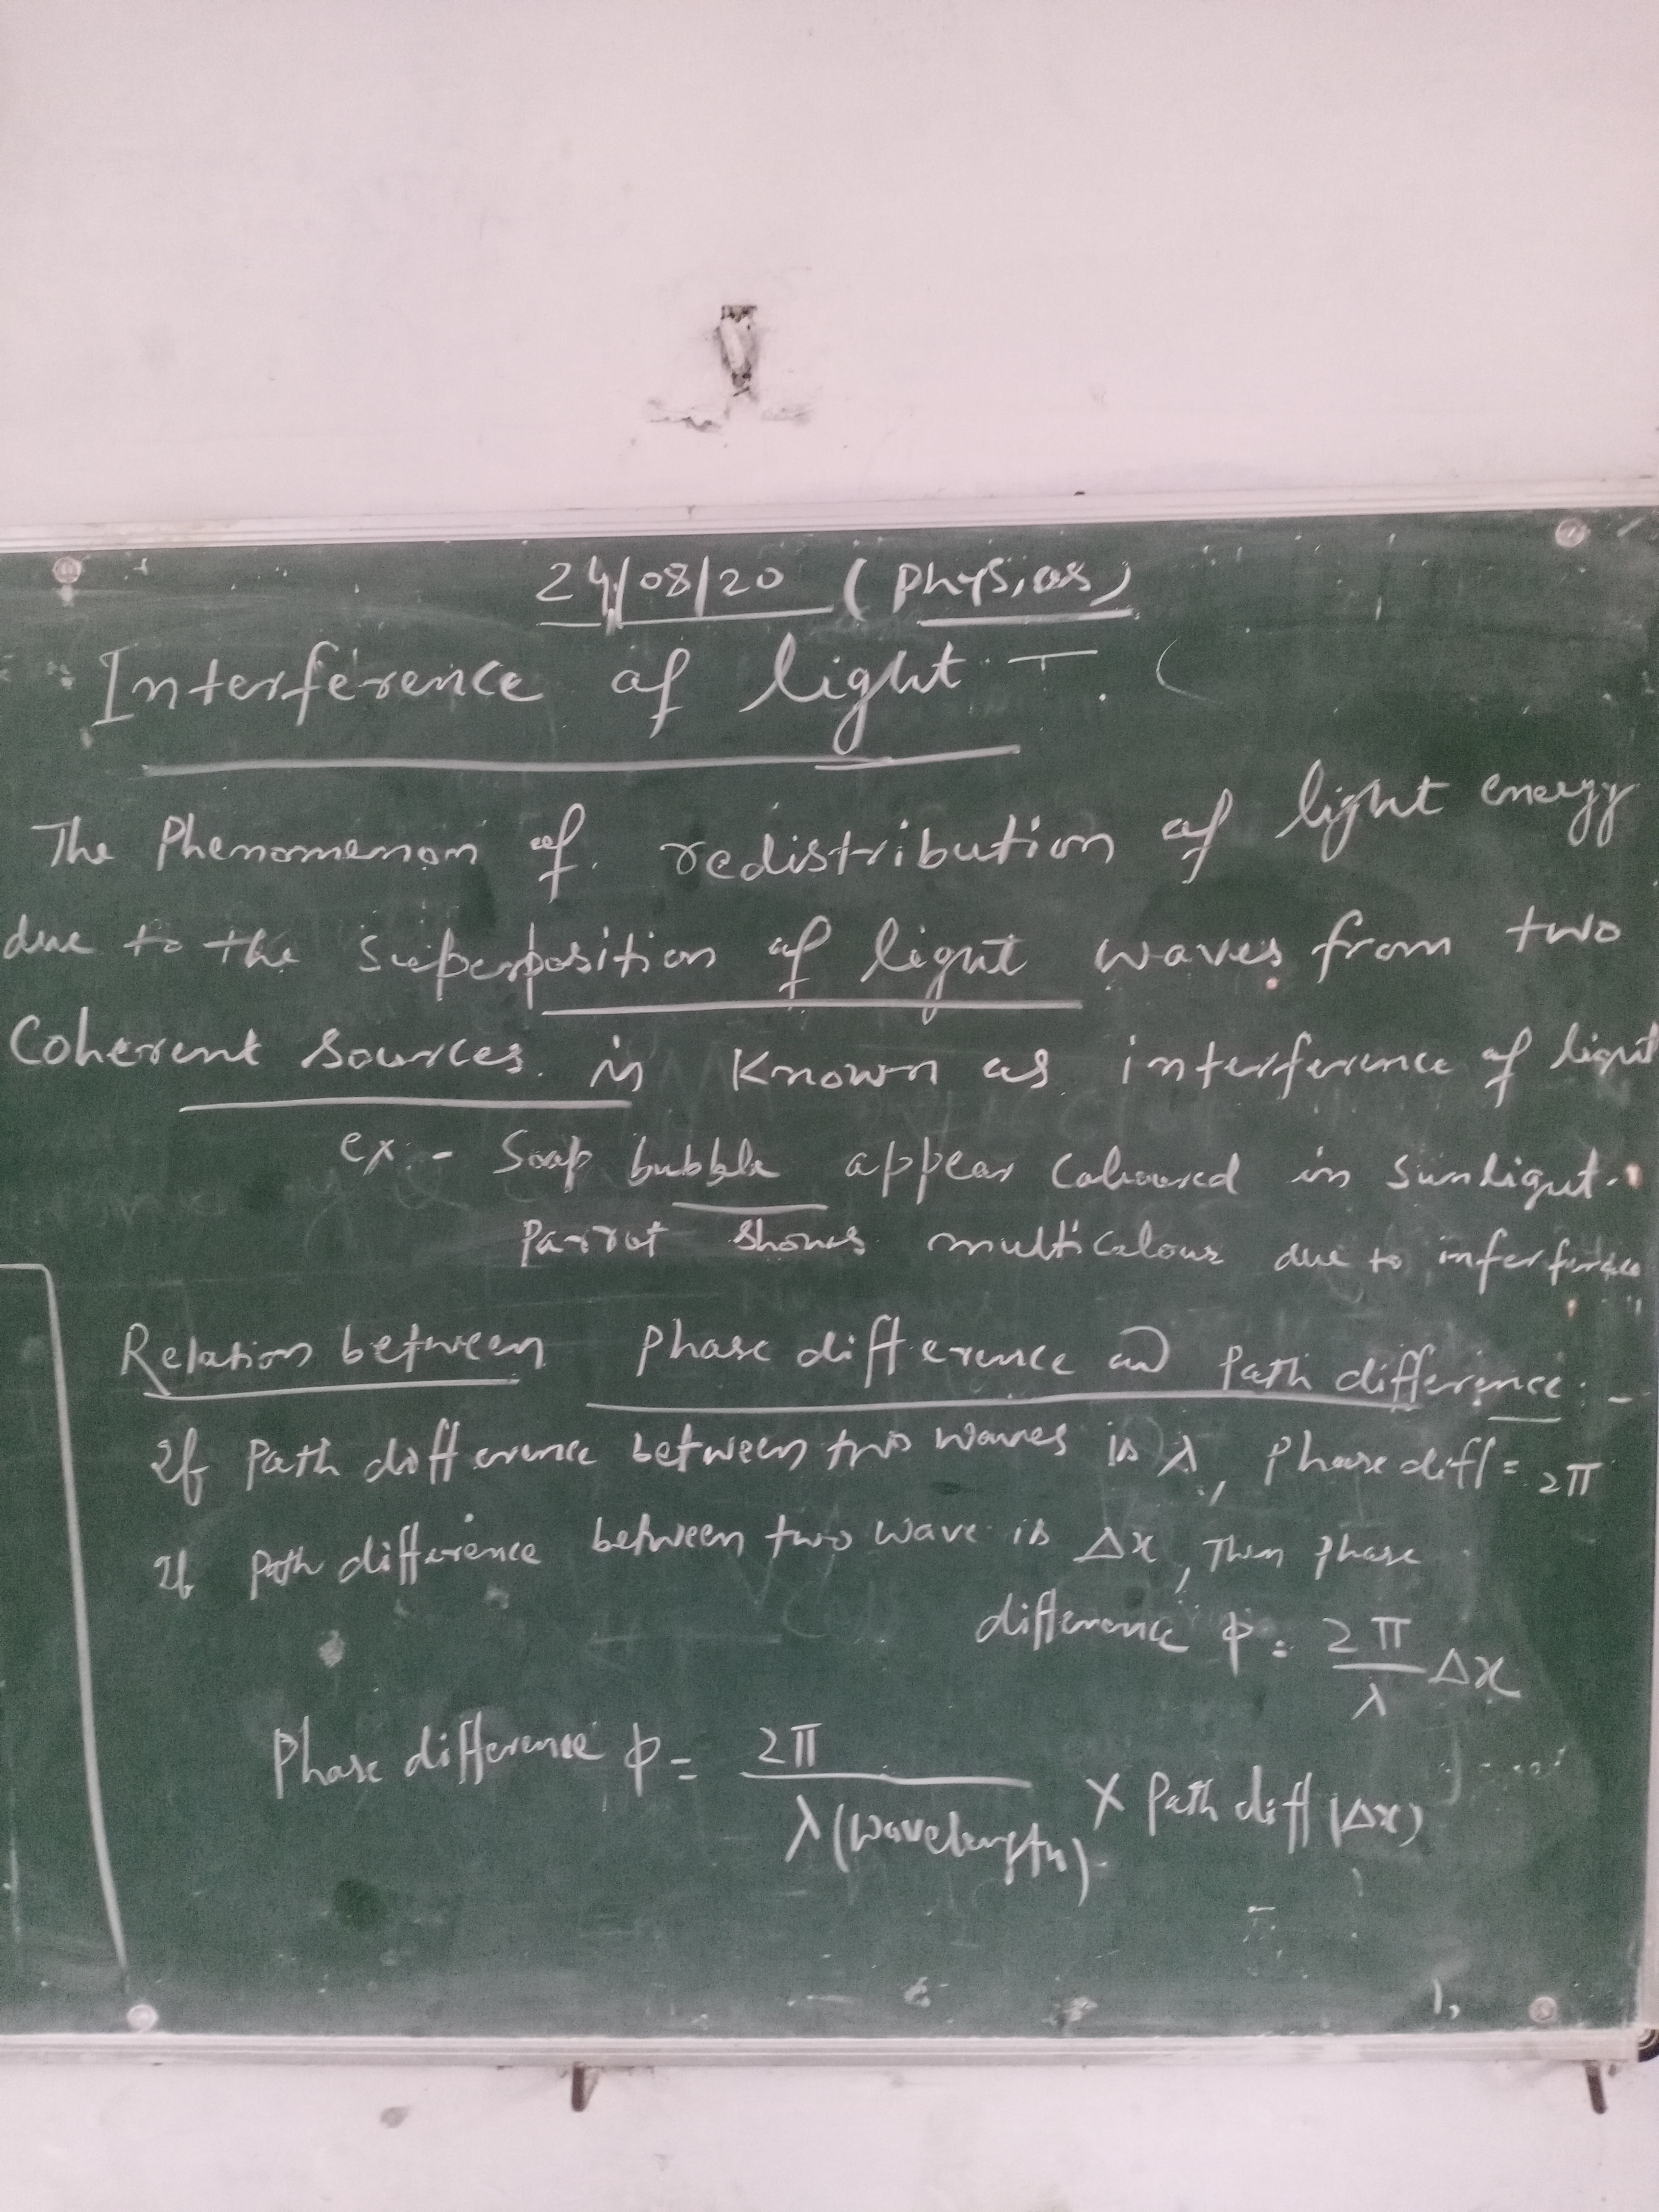 24/08/20 (Physics)
Interference of light -
The Phenomenon of redistribution of light energy
due to the superposition of light waves from two
Coherent sources is known as interference of light
ex - Soap bubble appear coloured in sunlight.
Parrot shows multicolour due to interference
Relation between phase difference and path difference -
If path difference between two waves is λ, phase diff = 2π
If path difference between two wave is Δx, Then phase
difference ϕ = 2π/λ Δx
Phase difference ϕ = 2π/λ(wavelength) × Path diff (Δx)